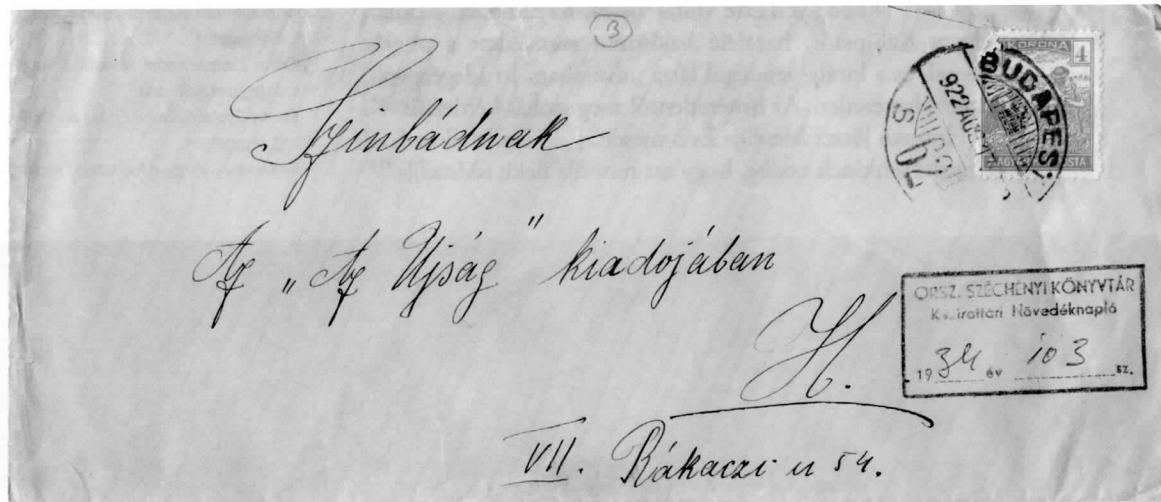 3
KORONA 4
BUDAPES.
922
MAGYAR POSTA
Szinbádnak
Az „Az Ujság" kiadójában
H.
VII. Rákaczi u 54.
ORSZ. SZÉCHENYI KÖNYVTÁR
Kézirattári Növedéknapló
1934 év 103 sz.